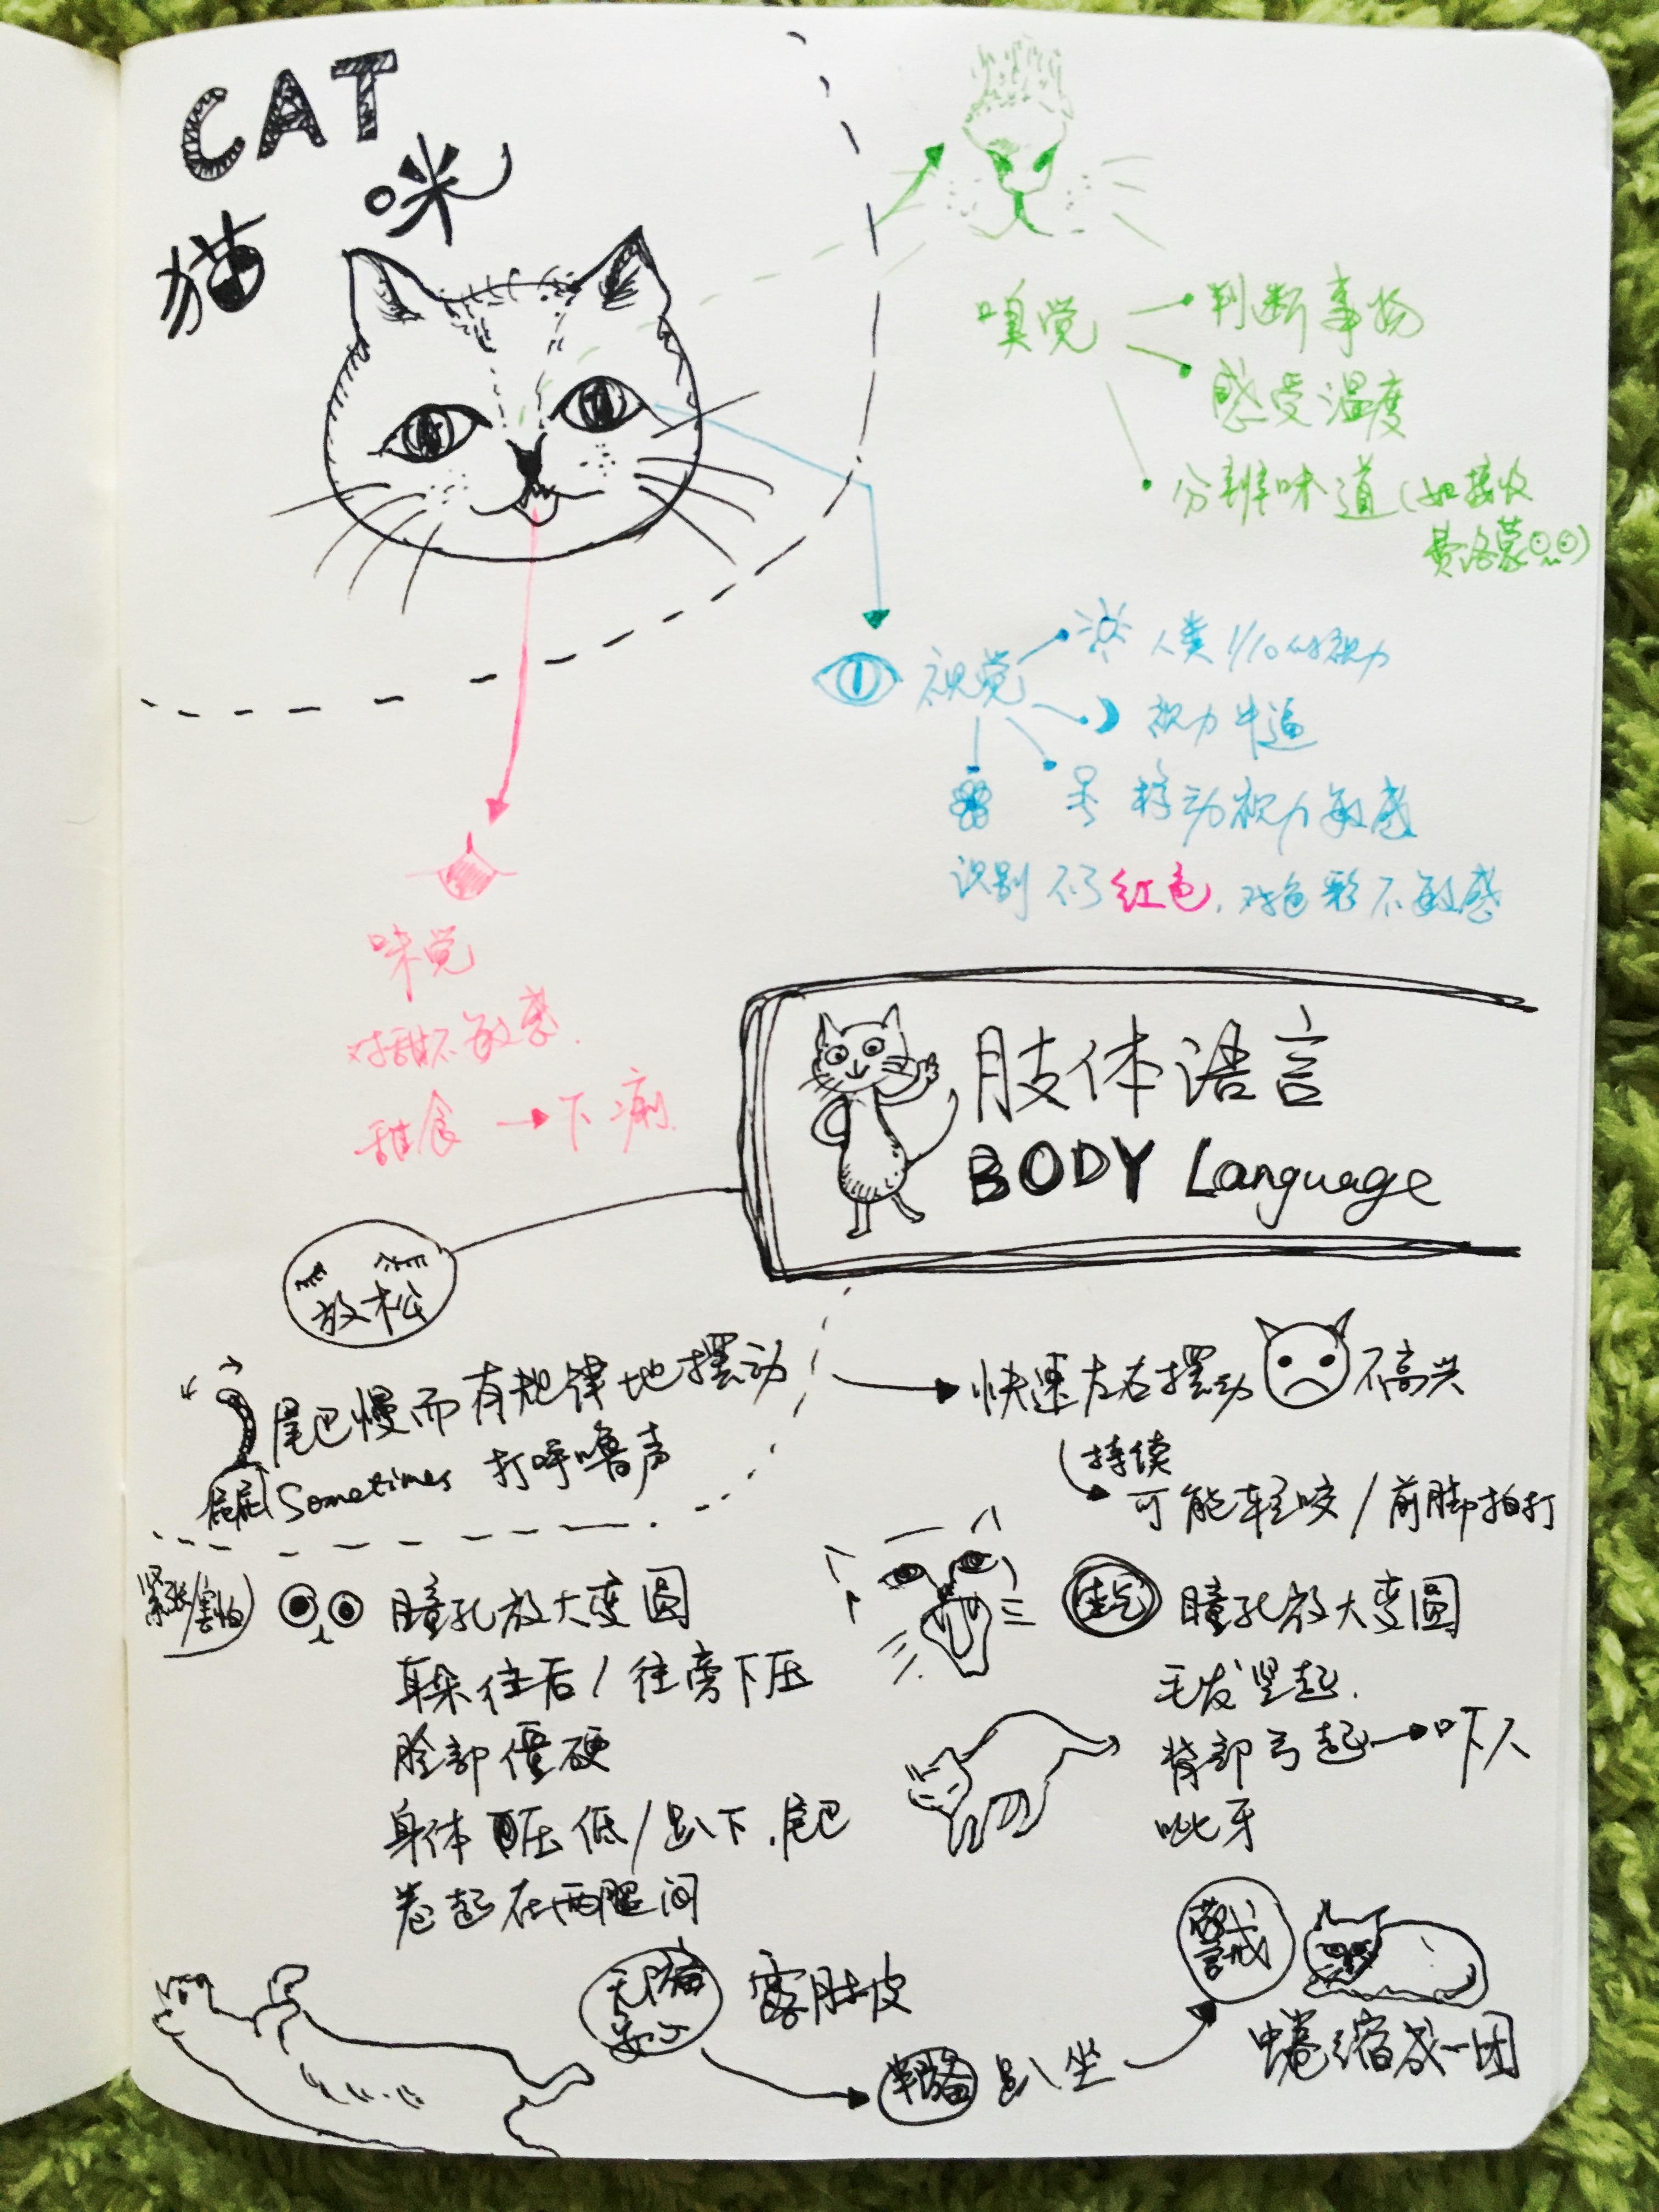 CAT
猫咪
嗅觉
判断事物
感受温度
分辨味道(如接收
费洛蒙
视觉
人类1/10的视力
视力牛逼
移动视力敏感
识别不了红色,对色彩不敏感
味觉
对甜不敏感.
甜食→下痢.
肢体语言
BODY Language
放松
尾巴慢而有规律地摆动
屁屁
Sometimes 打呼噜声
快速左右摆动
不高兴
持续
可能轻咬/前脚拍打
紧张/害怕
瞳孔放大变圆
耳朵往后/往旁下压
脸部僵硬
身体压低/趴下.尾巴
卷起在两腿间
生气
瞳孔放大变圆
毛发竖起.
背部弓起→吓人
呲牙
露肚皮
趴坐
警戒
蜷缩成一团